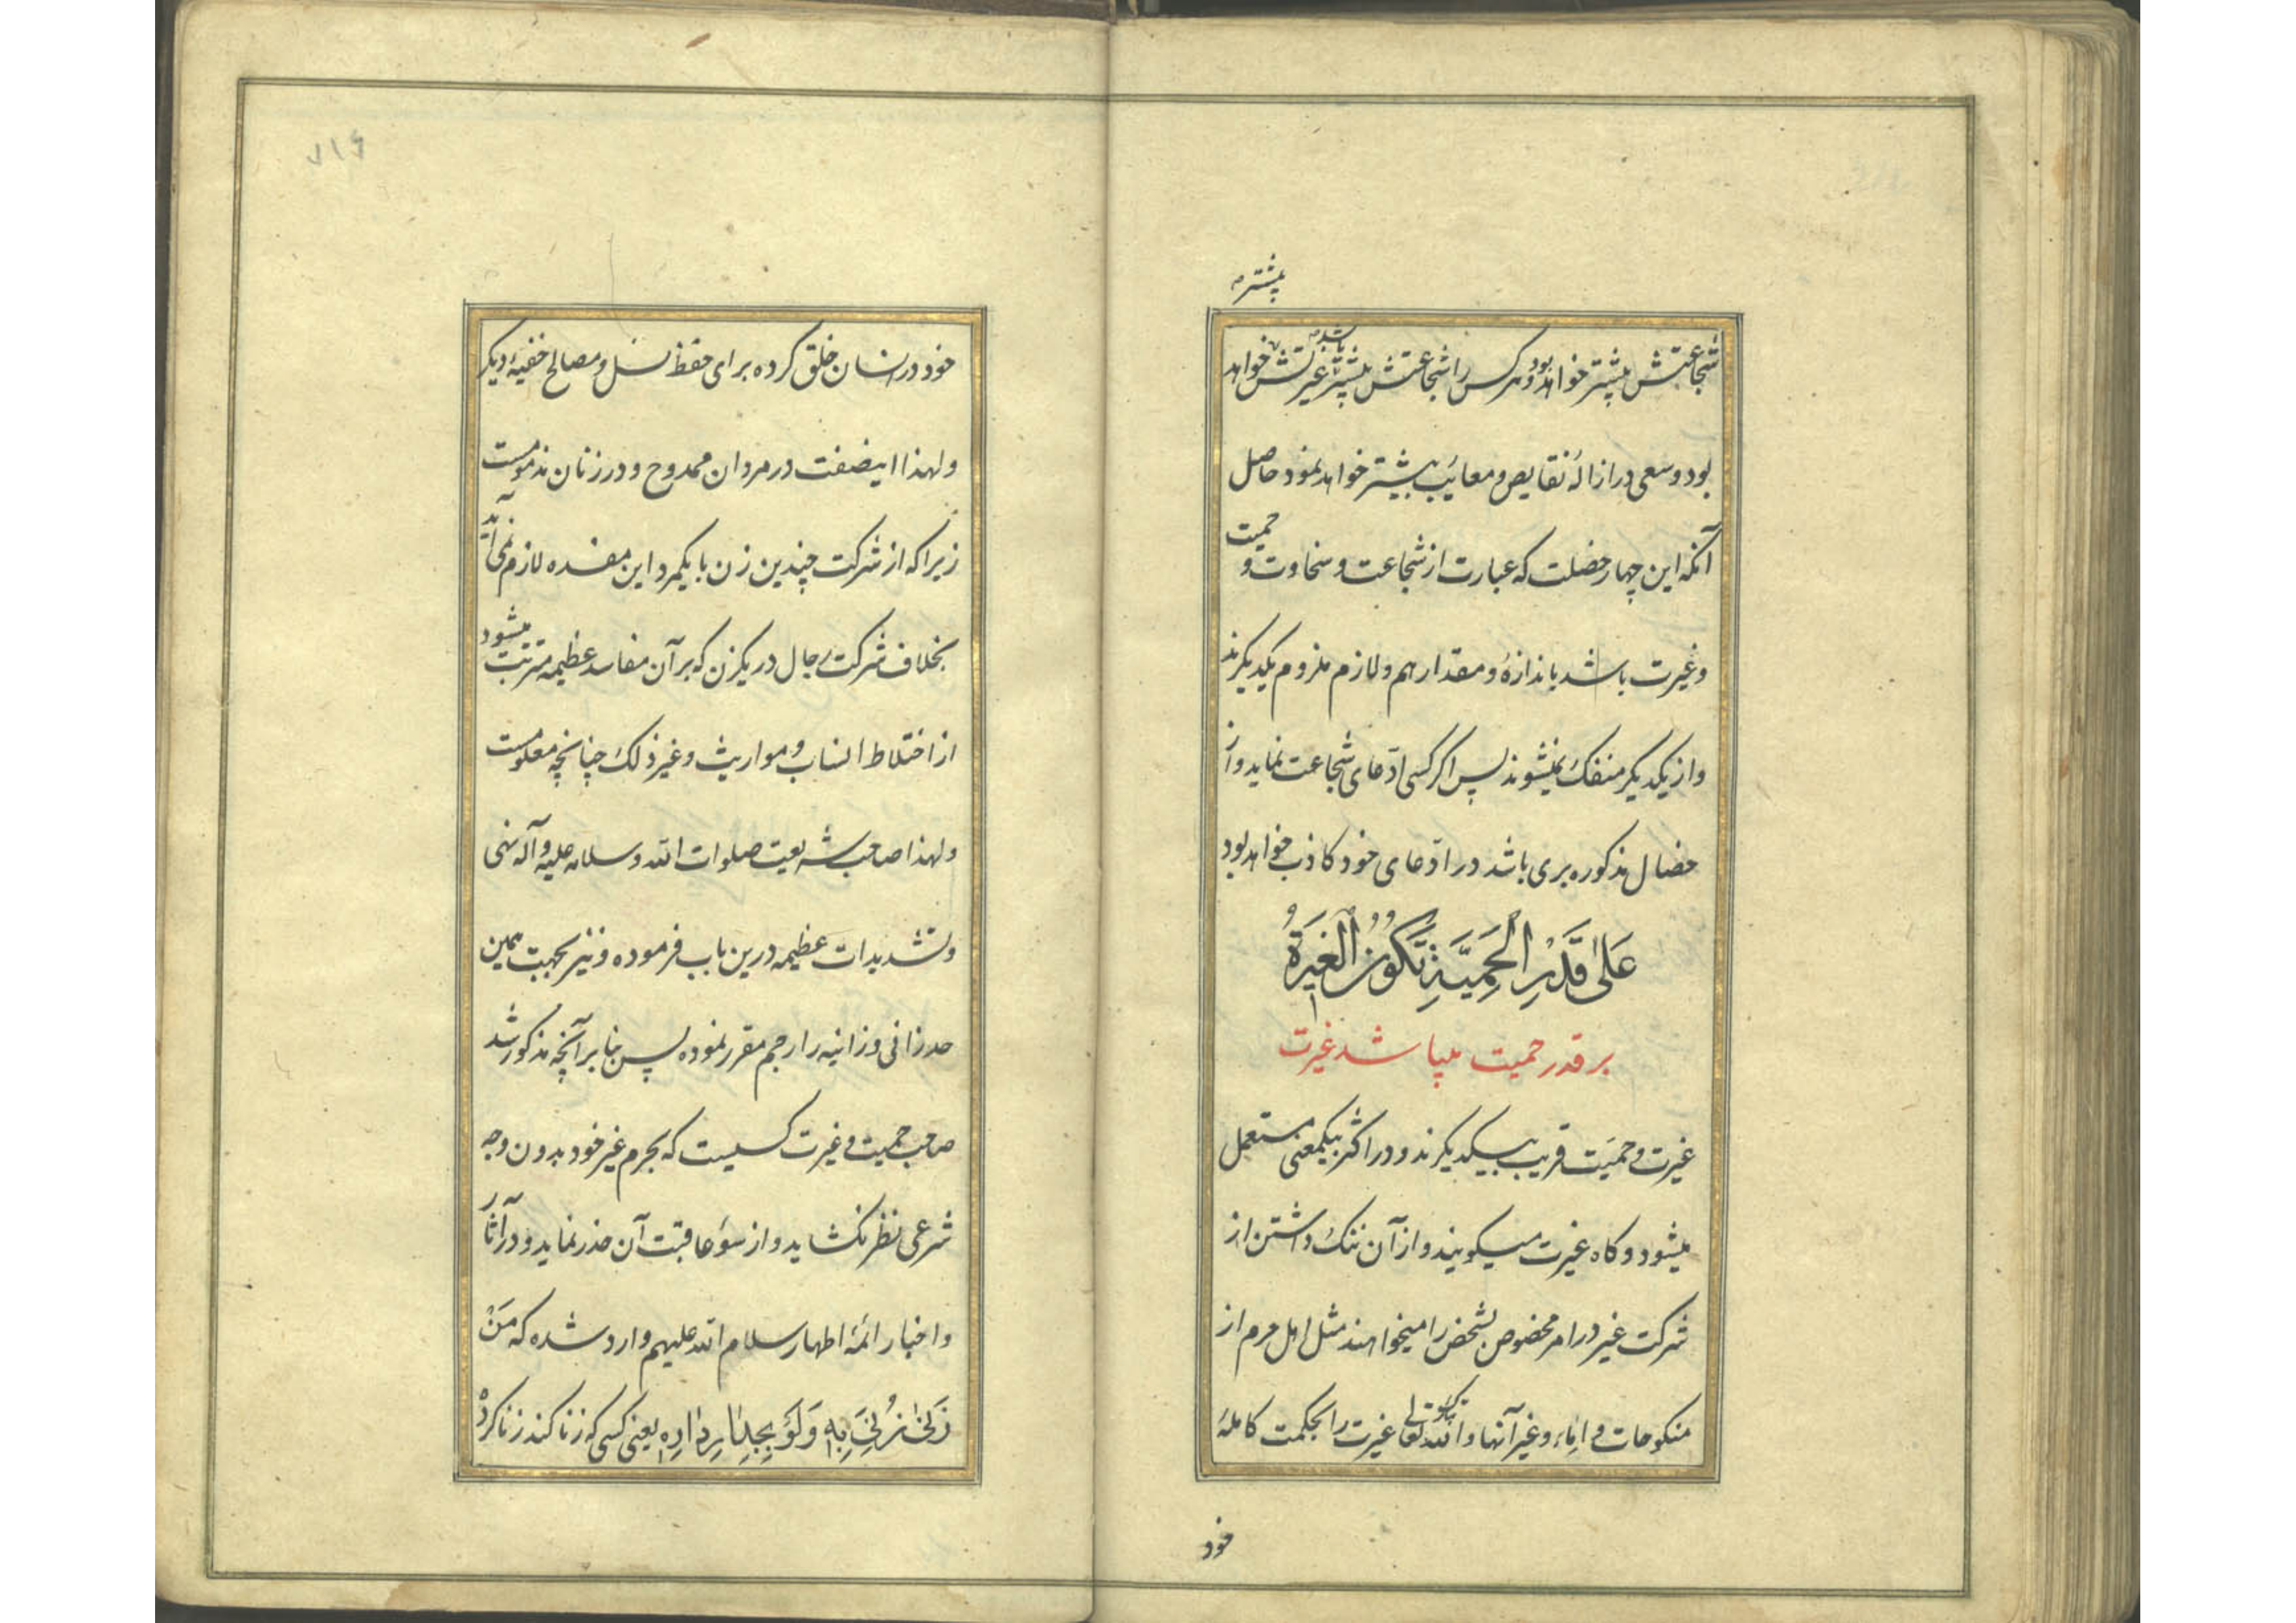 بیشتر
شجاعتش بیشتر خواهد بود و هرکس را شجاعتش بیشتر باشد غیرتش خواهد
بود و سعی در ازالهٔ نقایص و معائب بیشتر خواهد نمود حاصل
آنکه این چهار خصلت که عبارت از شجاعت و سخاوت و حمیت
و غیرت باشد باندازهٔ و مقدار هم و لازم ملزوم یکدیکرند
و از یکدیکر منفک نمیشوند پس اکر کسی ادّعای شجاعت نماید و از
خصال مذکوره بری باشد در ادّعای خود کاذب خواهد بود
عَلىٰ قَدْرِ الْحَمِيَّةِ تَكُونُ الْغَيْرَةُ
بر قدر حمیت میباشد غیرت
غیرت و حمیّت قریب بیکدیکرند و در اکثر بیکمعنی مستعمل
میشود و کاه غیرت میکویند و از آن ننک داشتن از
شرکت غیر در امر مخصوص بشخص را میخواهند مثل اهل حرم از
منکوحات و اِماء و غیر آنها و الله تعالی غیرت را بحکمت کاملهٔ
خود
۷۱۶
خود در انسان خلق کرده برای حفظ نسل و مصالح خفیهٔ دیکر
و لهذا اینصفت در مردان ممدوح و در زنان مذمومست
زیرا که از شرکت چندین زن با یکمرد این مفسده لازم نمی‌آید
بخلاف شرکت رجال در یکزن که بر آن مفاسد عظیمه مترتب میشود
از اختلاط انساب و مواریث و غیر ذلک چنانچه معلومست
و لهذا صاحب شریعت صلوات الله و سلامه علیه و آله نهی
و تشدیدات عظیمه درین باب فرموده و نیز بجهت همین
حد زانی و زانیه را رجم مقرر نموده پس بنا بر آنچه مذکور شد
صاحب حمیت و غیرت کسیست که بحرم غیر خود بدون وجه
شرعی نظر نکشاید و از سوٴ عاقبت آن حذر نماید و در آثار
و اخبار ائمهٔ اطهار سلام الله علیهم وارد شده که مَنْ
زَنىٰ زُنِيَ بِهِ وَلَوْ بِجِدٰارِ دٰارِهِ یعنی کسی که زنا کند زنا کرده